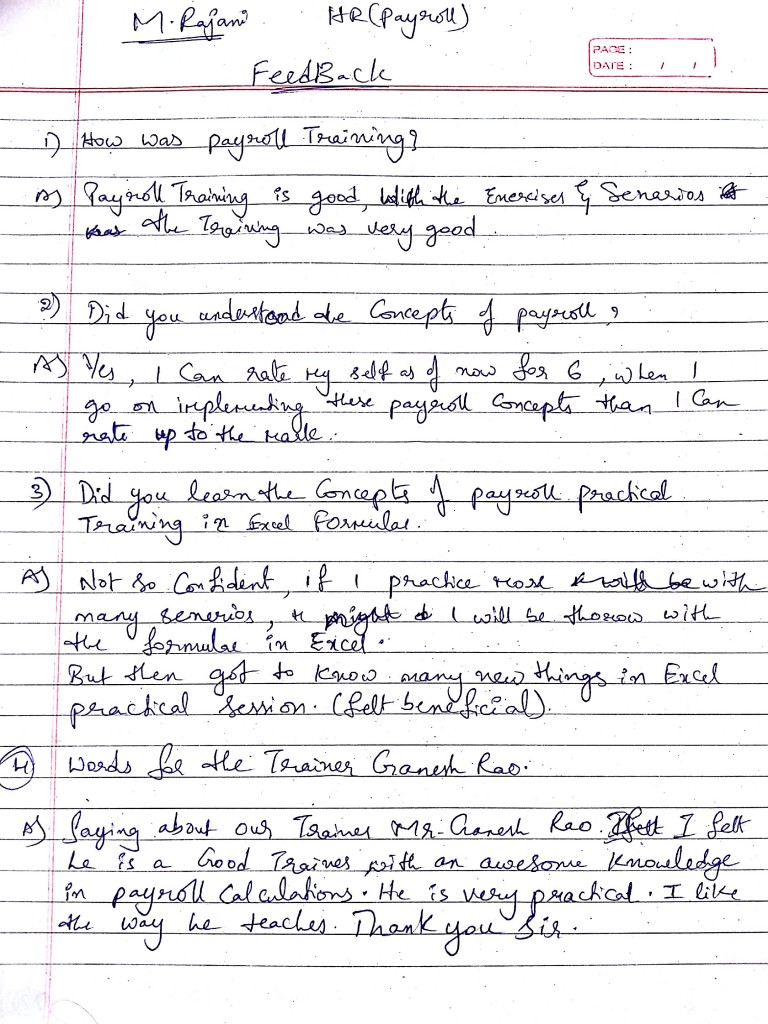 M. Rajani HR (Payroll)
PAGE :
DATE : / /
FeedBack
1) How was payroll Training?
A) Payroll Training is good, With the Exercises & Senarios
the Training was very good.
2) Did you understand the Concepts of payroll ?
A) Yes, I Can rate my self as of now for 6, when I
go on implementing these payroll Concepts than I Can
rate up to the mark.
3) Did you learn the Concepts of payroll practical
Training in Excel Formulae.
A) Not so Confident, if I practice more with
many senerios, I will be thorow with
the formulae in Excel.
But then got to know many new things in Excel
practical session. (felt beneficial).
4) Words for the Trainer Ganesh Rao.
A) Saying about our Trainer Mr. Ganesh Rao. I felt
he is a Good Trainer with an awesome knowledge
in payroll Calculations. He is very practical. I like
the way he teaches. Thank you Sir.